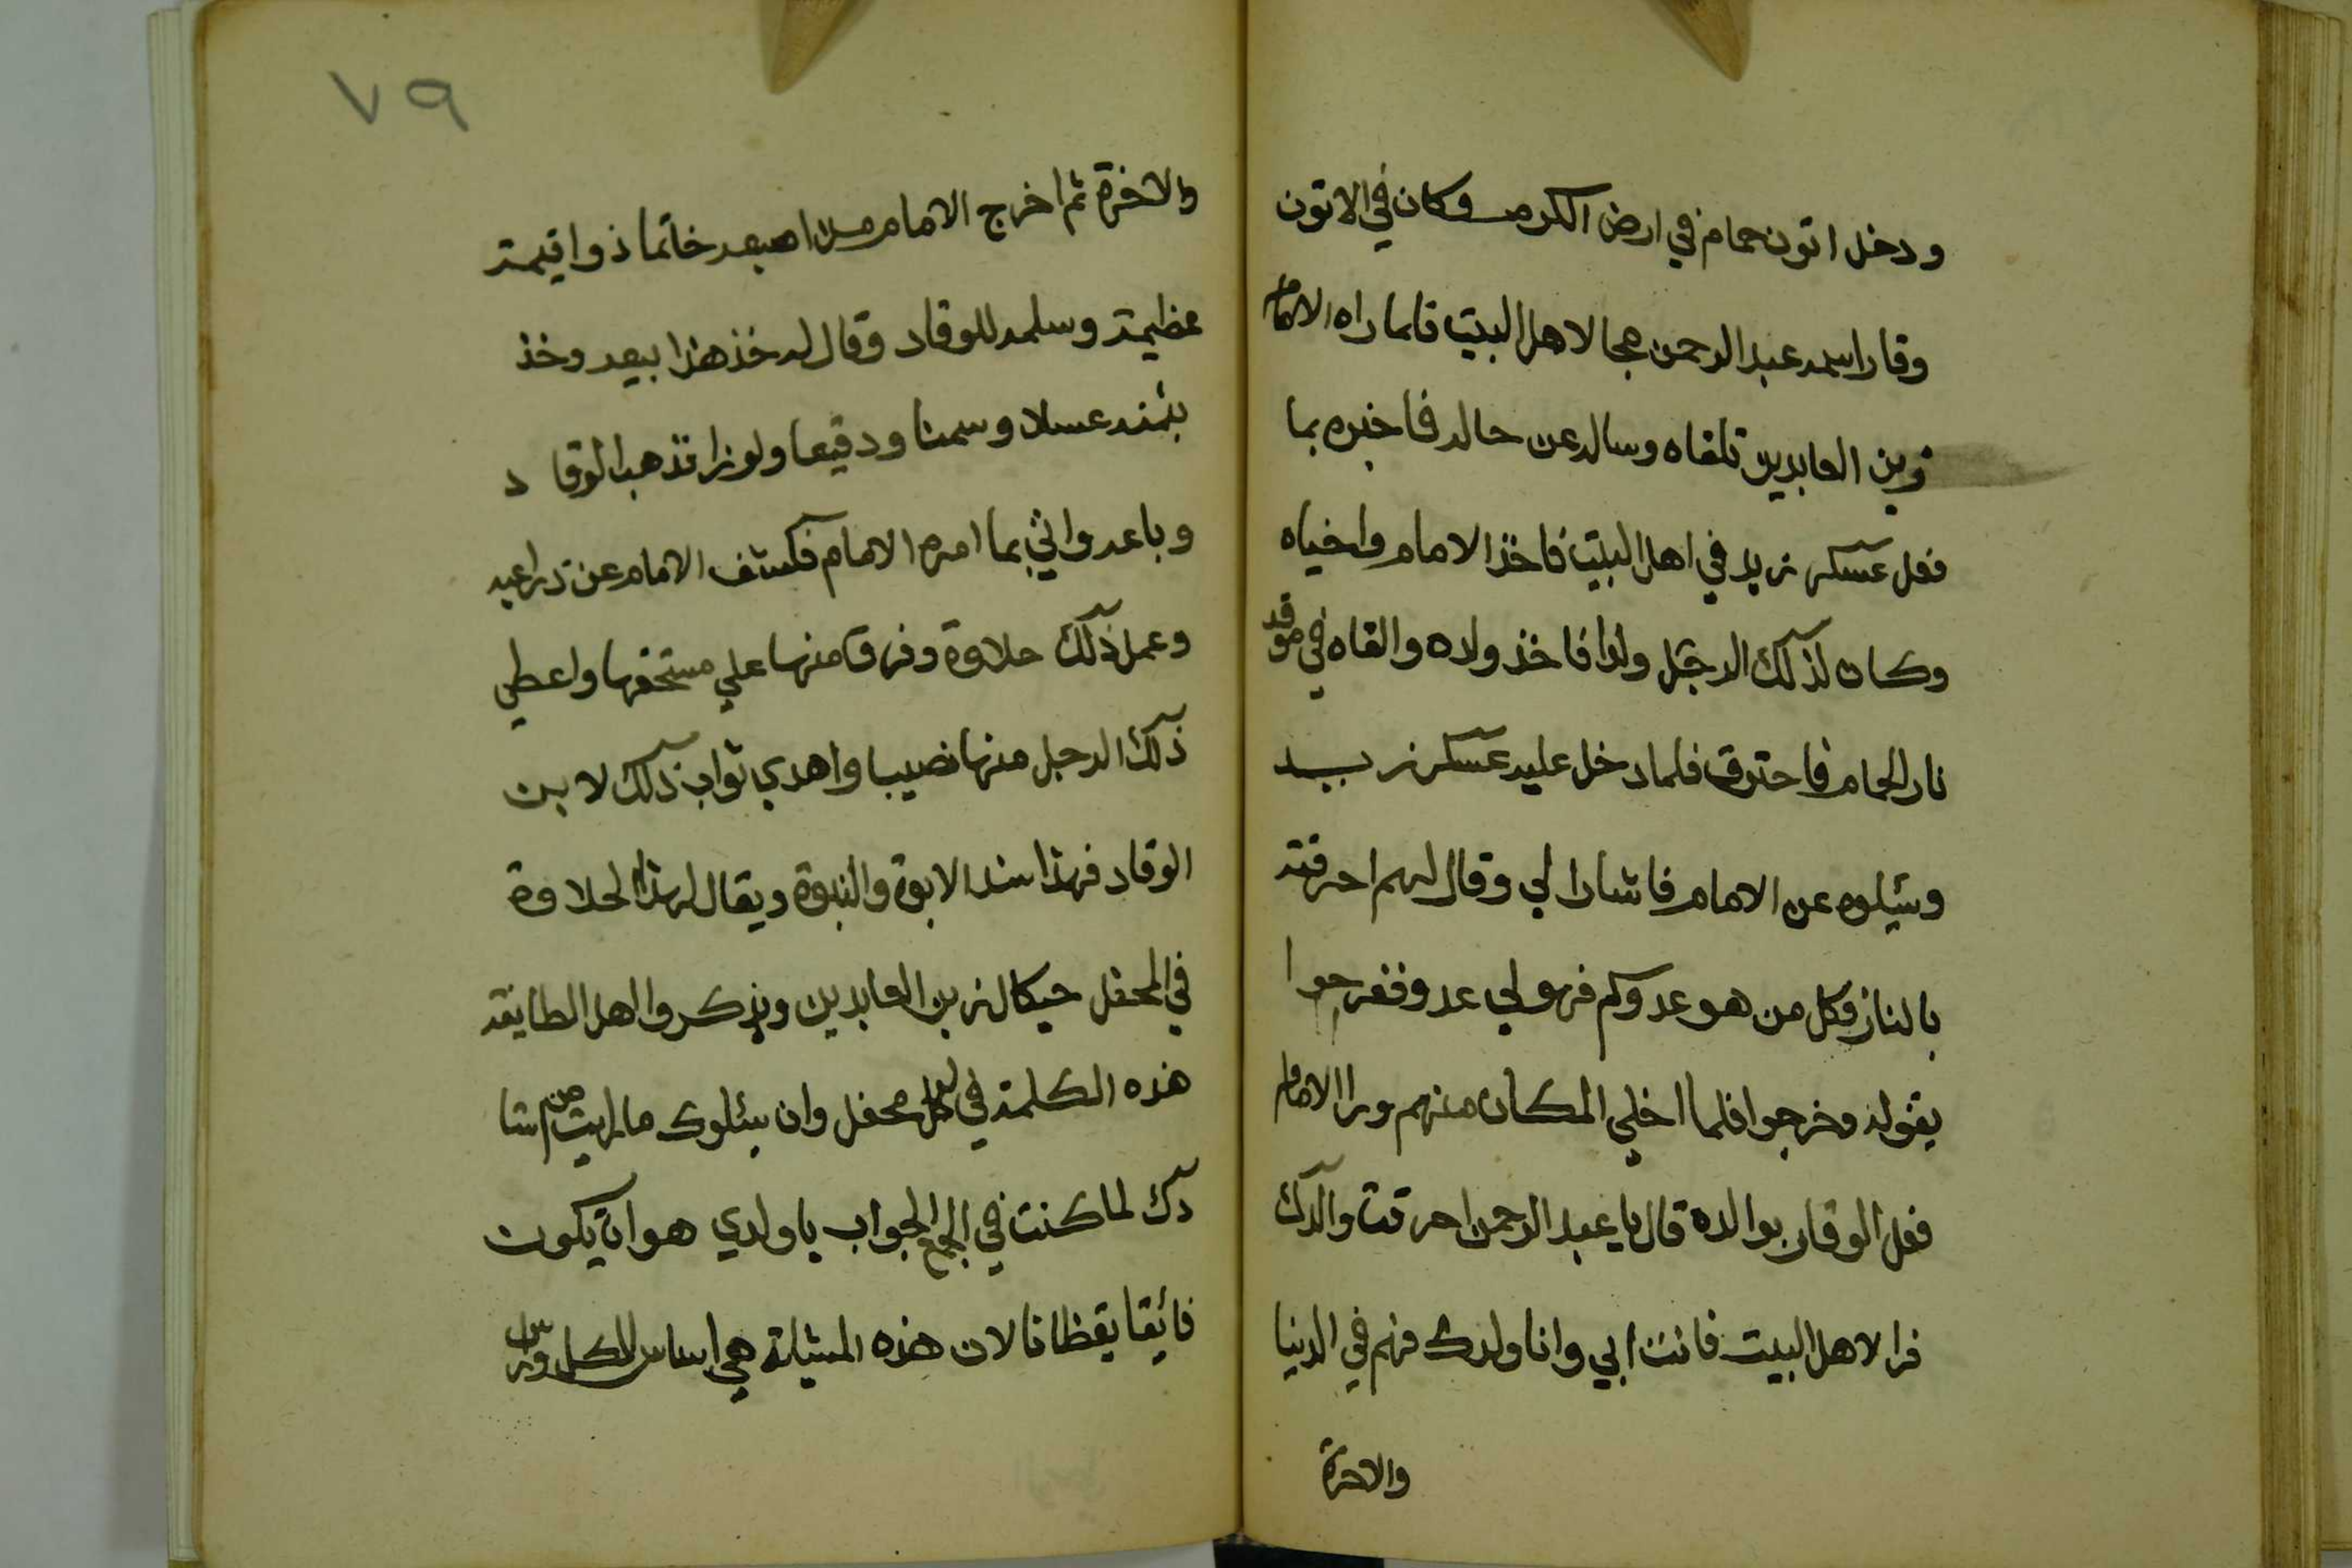 ودخل اتون حمام في ارض الكرم وكان في الاتون
وقاد اسمه عبد الرحمن محبا لاهل البيت فلما راه الامام
زين العابدين تلقاه وساله عن حاله فاخبره بما
فعل عسكر يزيد في اهل البيت فاخذ الامام واخباه
وكان لذلك الرجل ولدا فاخذ ولده والقاه في موقد
نار الحمام فاحترق فلما دخل عليه عسكر يزيد
وسئيلوه عن الامام فاشار الي وقال لهم احرقته
بالنار وكل من هو عدوكم فهو لي عدو ففرحوا
بقوله وخرجوا فلما اخلي المكان منهم ورا الامام
فعل الوقاد بوالده قال يا عبد الرحمن احرقت والدك
فدا لاهل البيت فانت ابي وانا ولدك فهم في الدنيا
والاخرة
٧٩
والاخرة ثم اخرج الامام من اصبعه خاتما ذوا قيمة
عظيمة وسلمه للوقاد وقال له خذ هذا بيعه وخذ
بثمنه عسلا وسمنا ودقيقا ولوزا فذهب الوقاد
وباعه واتي بما امره الامام فكشف الامام عن دراعيه
وعمل ذلك حلاوة وفرق منها علي مستحقها واعطي
ذلك الرجل منها نصيبا واهدي ثواب ذلك لابن
الوقاد فهذا سند الابوة والنبوة ويقال لهذا الحلاوة
في المحفل حيكال زين العابدين ويذكروا اهل الطايفة
هذه الكلمة في كل محفل وان سئلوك ما رايت من اشا
دك لما كنت في الجمع الجواب يا ولدي هو ان يكون
فائقا يقظانا لان هذه المسئلة هي اساس للكل ومن